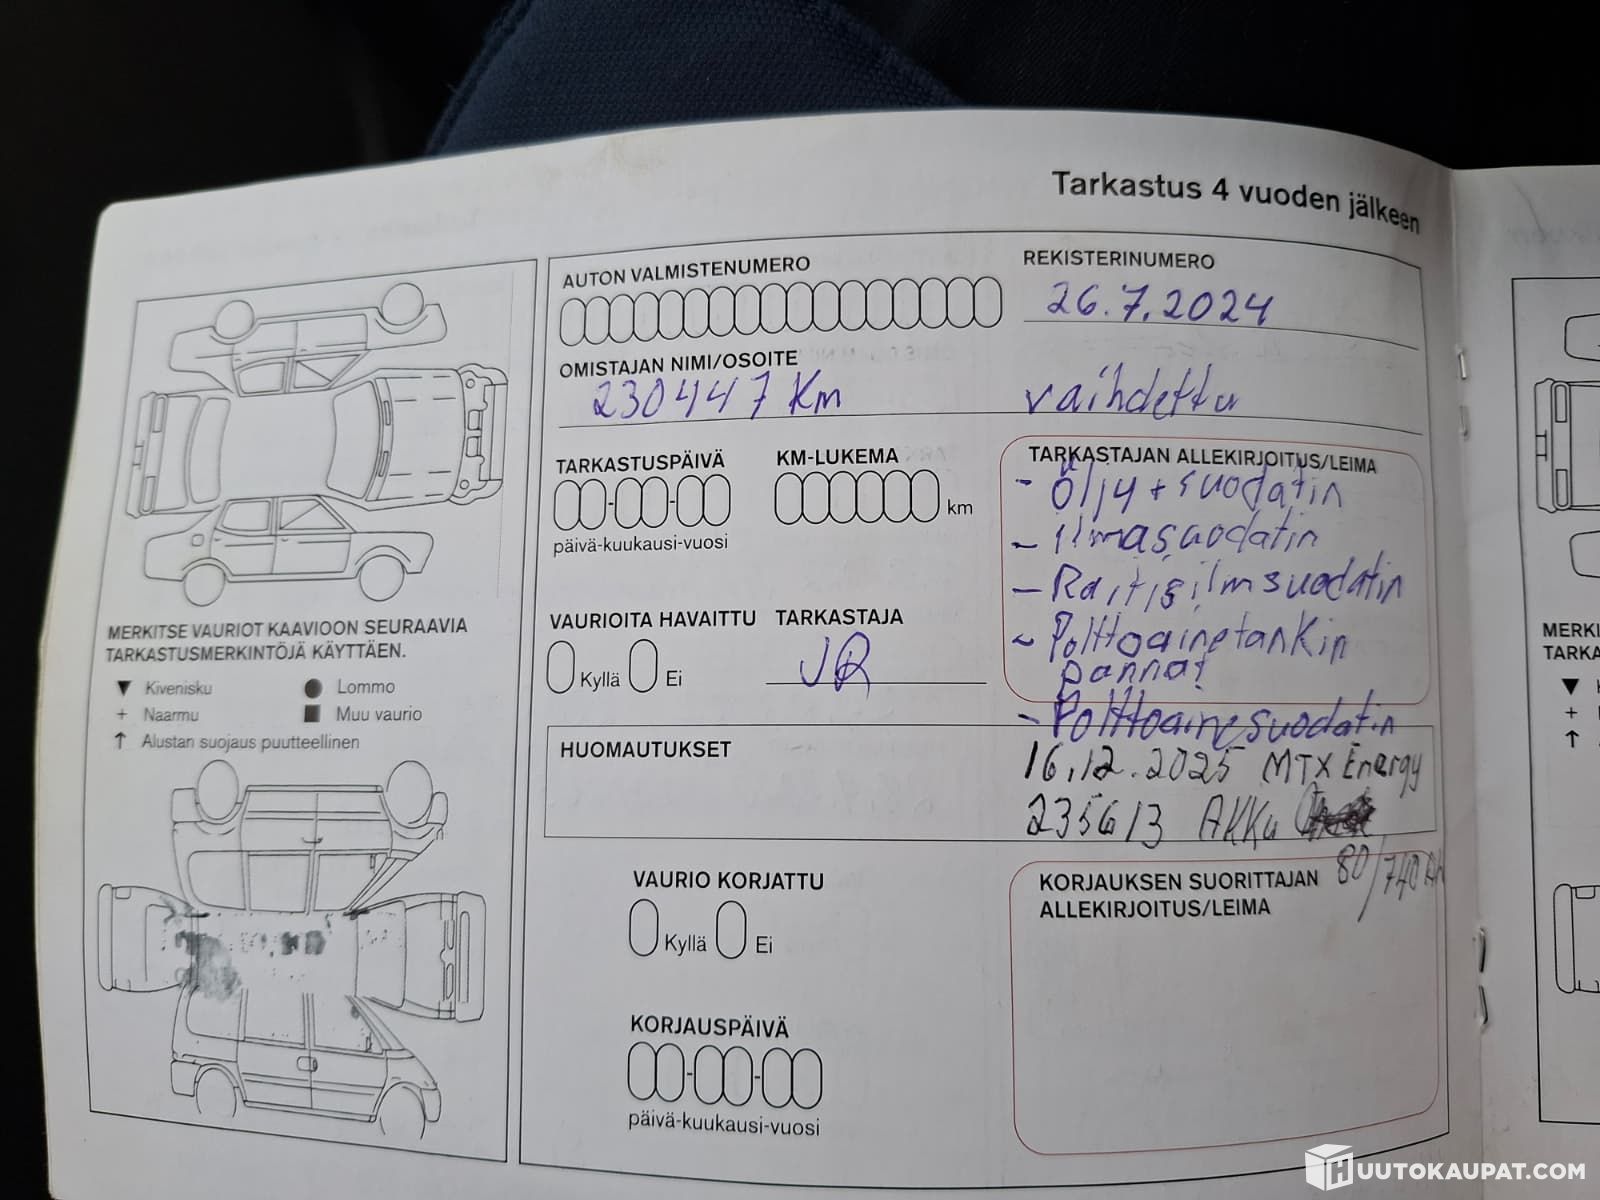 Tarkastus 4 vuoden jälkeen
AUTON VALMISTENUMERO
REKISTERINUMERO
26.7.2024
OMISTAJAN NIMI/OSOITE
230447 Km
vaihdettu
TARKASTUSPÄIVÄ
KM-LUKEMA
km
päivä-kuukausi-vuosi
TARKASTAJAN ALLEKIRJOITUS/LEIMA
- Öljy + suodatin
- ilmasuodatin
- Raitisilmsuodatin
- Polttoainetankin
pannat
- Polttoainesuodatin
VAURIOITA HAVAITTU
Kyllä Ei
TARKASTAJA
JR
HUOMAUTUKSET
16.12.2025 MTX Energy
235613 AKKu
80/740 Ah
VAURIO KORJATTU
Kyllä Ei
KORJAUKSEN SUORITTAJAN
ALLEKIRJOITUS/LEIMA
KORJAUSPÄIVÄ
päivä-kuukausi-vuosi
MERKITSE VAURIOT KAAVIOON SEURAAVIA
TARKASTUSMERKINTÖJÄ KÄYTTÄEN.
▼ Kivenisku
● Lommo
+ Naarmu
■ Muu vaurio
↑ Alustan suojaus puutteellinen
MERKI
TARKA
HUUTOKAUPAT.COM